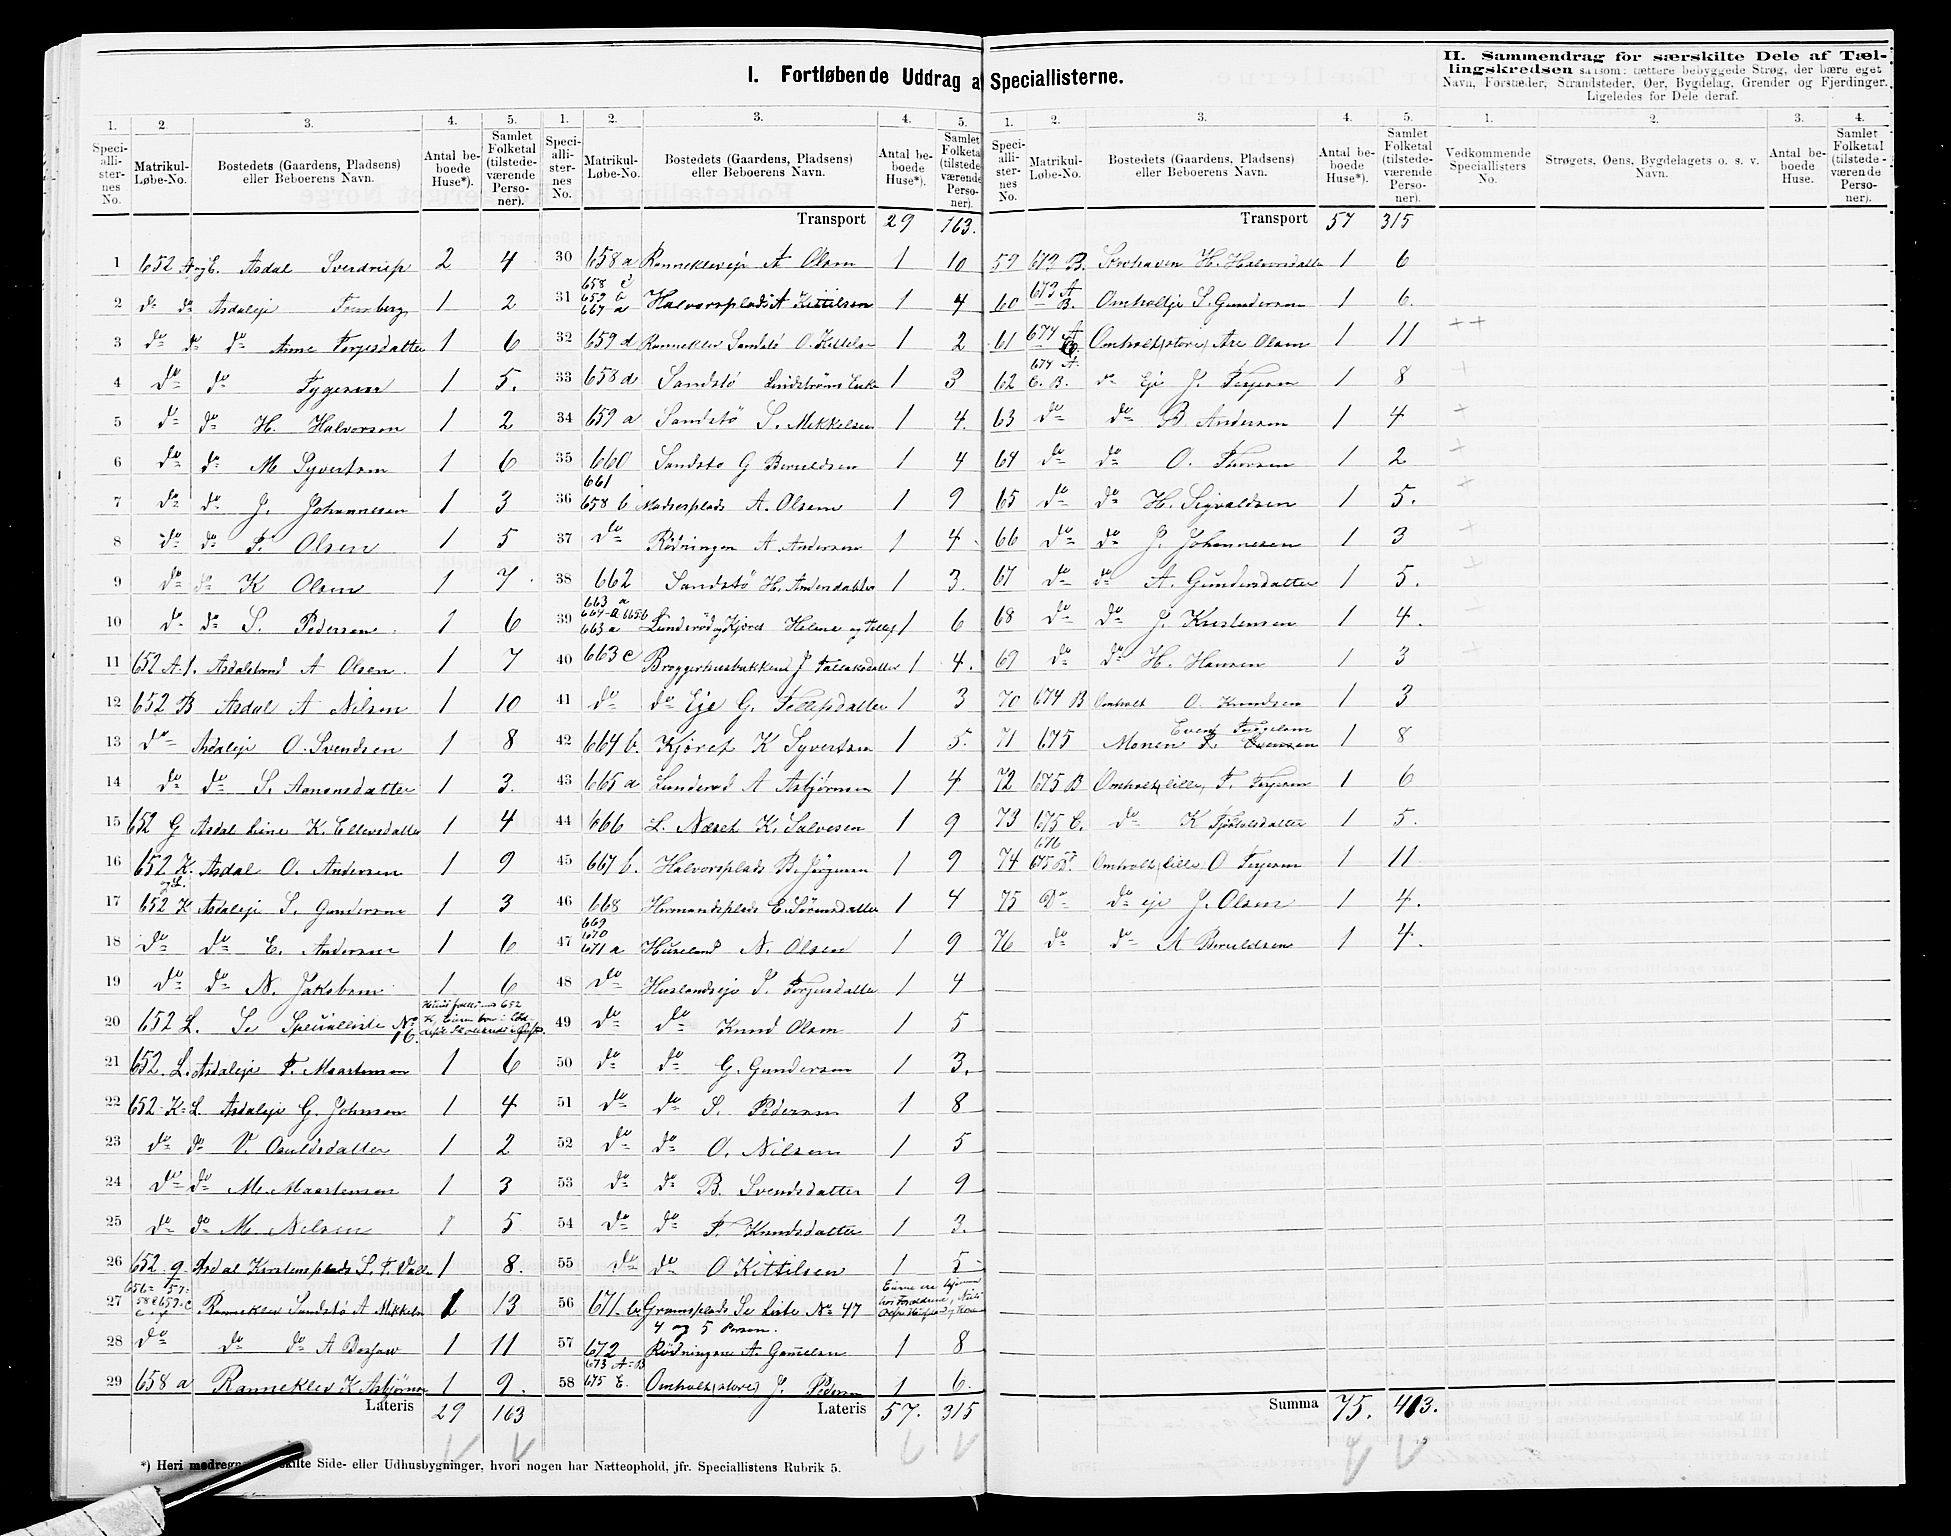 I. Fortløbende Uddrag af Speciallisterne.
II. Sammendrag for særskilte Dele af Tæl-
lingskredsen saasom: tættere bebyggede Strøg, der bære eget
Navn, Forstæder, Strandsteder, Øer, Bygdelag, Grender og Fjerdinger.
Ligeledes for Dele deraf.
1. 2 3. 4. 5.
Speci-alli-ster-nes No. Matrikul-Løbe-No. Bostedets (Gaardens, Pladsens) eller Beboerens Navn. Antal be-boede Huse*). Samlet Folketal (tilstede-værende Perso-ner).
1 652 A og C. Asdal Sverdrup 2 4
2 do do Asdaleje Fromberg 1 2
3 do do do Anne Torjesdatter 1 6
4 do do Tygesen 1 5.
5 do do H. Halvorsen 1 2
6 do do M Syvertsen 1 6
7 do do J. Johannesen 1 3
8 do do T. Olsen 1 5
9 do do K Olsen 1 7.
10 do do S. Pedersen 1 6
11 652 A.1. Asdalstrand A Olsen. 1 7
12 652 B Asdal A Nilsen 1 10
13 do Asdaleje O. Svendsen 1 8
14 do do S. Aanonsdatter 1 3.
15 652 G Asdal K. Ellevsdatter 1 4
16 652 K. og L. Asdal O. Andersen 1 9
17 652 K Asdaleje S. Gundersen 1 3
18 do do E. Andersen 1 6
19 do do N. Jakobsen 1 6
20 652 L. Se Specialliste No 16.
21 652. L. Asdaleje T. Maartensen 1 6
22 652. K=L Asdaleje G. Johnsen 1 4
23 do do V. Osuldsdatter 1 2
24 do do M. Maartensen 1 3
25 do do M. Nilsen 1 5
26 652 9. Asdal Kirstensplads S. T. 1 8.
27 Ranneklev Sandstø A Mikkels 1 13
28 do do do A 1 11
29 658 a Ranneklev K Asbjørnsen 1 9.
Lateris 29 163
1. 2. 3. 4. 5.
Speci-alli-ster-nes No. Matrikul-Løbe-No. Bostedets (Gaardens, Pladsens) eller Beboerens Navn. Antal be-boede Huse*). Samlet Folketal (tilstede-værende Perso-ner).
Transport 29 163.
30 658 a Rannekleveje A Olsen 1 10
31 658 c 659 b 667 a Halvorsplads A Kittilsen 1 4
32 659 d Ranneklev Sandstø O. Kittelsen 1 2
33 658 d Sandstø Lindstrøms Enke 1 3
34 659 a Sandstø S. Mikkelsen 1 4.
35 660 Sandstø G Beruldsen 1 4
36 661 658 b Madsesplads A. Olsen 1 9
37 do Rødningen A. Andersen 1 4
38 662 Sandstø H. Amundsdatter 1 3.
39 663 a Lunderød og Kjøret Helene og 1 6
40 663 c Bryggerhusbakken J Tallaksdatter 1 4.
41 do do Eje G. Tellefsdatter 1 3
42 664 b. Kjøret K Syvertsen 1 5.
43 665 a Lunderød A Asbjørnsen 1 4
44 666 L. Næset K. Salvesen 1 9
45 667 b. Halvorsplads B. Jørgensen 1 9
46 668 Hermandsplads E. Sørensdatter 1 4
47 669 670 671 a Huseland N. Olsen 1 9
48 do Huslandseje T. Torjusdatter 1 4
49 do do Knud Olsen 1 5
50 do do G. Gundersen 1 3.
51 do do S. Pedersen 1 8
52 do do O. Nilsen 1 5
53 do do B. Svendsdatter 1 9
54 do do T. Knudsdatter 1 3.
55 do do O Kittilsen 1 5
56 671. b Gramsplads Se Liste No 47
4 og 5 Person.
57 672 Rødningen A. Gamelsen 1 8
58 673 A=B 675 E. Omholt (store) J. Pedersen 1 6.
Lateris 57. 315
1. 2. 3. 4. 5.
Speci-alli-ster-nes No. Matrikul-Løbe-No. Bostedets (Gaardens, Pladsens) eller Beboerens Navn. Antal be-boede Huse*). Samlet Folketal (tilstede-værende Perso-ner).
Transport 57 315
59 673 B. H. Halvorsdatter 1 6
60 673 A B. Omholteje S. Gundersen 1 6.
61 674 A Omholt (store) Are Olsen 1 11 ++
62 674 A. C. B. do Eje J. Terjesen 1 8 +
63 do do B Andersen 1 4 +
64 do do O. Thorsen 1 2 +
65 do do H. Sigvaldsen 1 5. +
66 do do J. Johannesen 1 3 +
67 do do A. Gundersdatter 1 5. +
68 do do J. Kristensen 1 4. +
69 do do H. Hansen 1 3 +
70 674 B Omholt O. Knudsen 1 3
71 675 Monen Even Terjesen 1 8
72 675 B Omholt (lille) T. Terjesen 1 6
73 675 C. do K Tjøstolsdatter 1 5.
74 676 675 B Omholt (lille) O Terjesen 1 11
75 Do do eje J. Olsen 1 4.
76 do do A Beruldsen 1 4.
Summa 75. 413.
1. 2. 3. 4.
Vedkommende Speciallisters No. Strøgets, Øens, Bygdelagets o. s. v. Navn. Antal be-boede Huse. Samlet Folketal (tilstede-værende Perso-ner).
*) Heri medregnes særskilte Side- eller Udhusbygninger, hvori nogen har Natteophold, jfr. Speciallistens Rubrik 5.